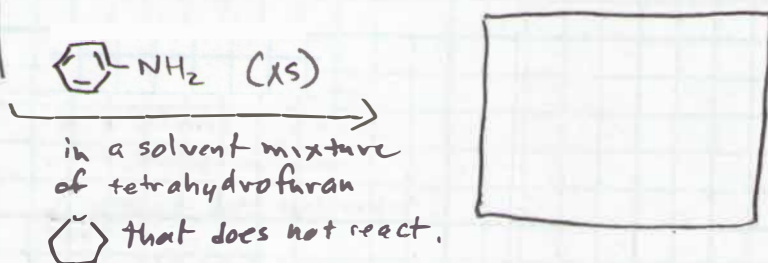 NH₂ (xs)
in a solvent mixture
of tetrahydrofuran
that does not react.